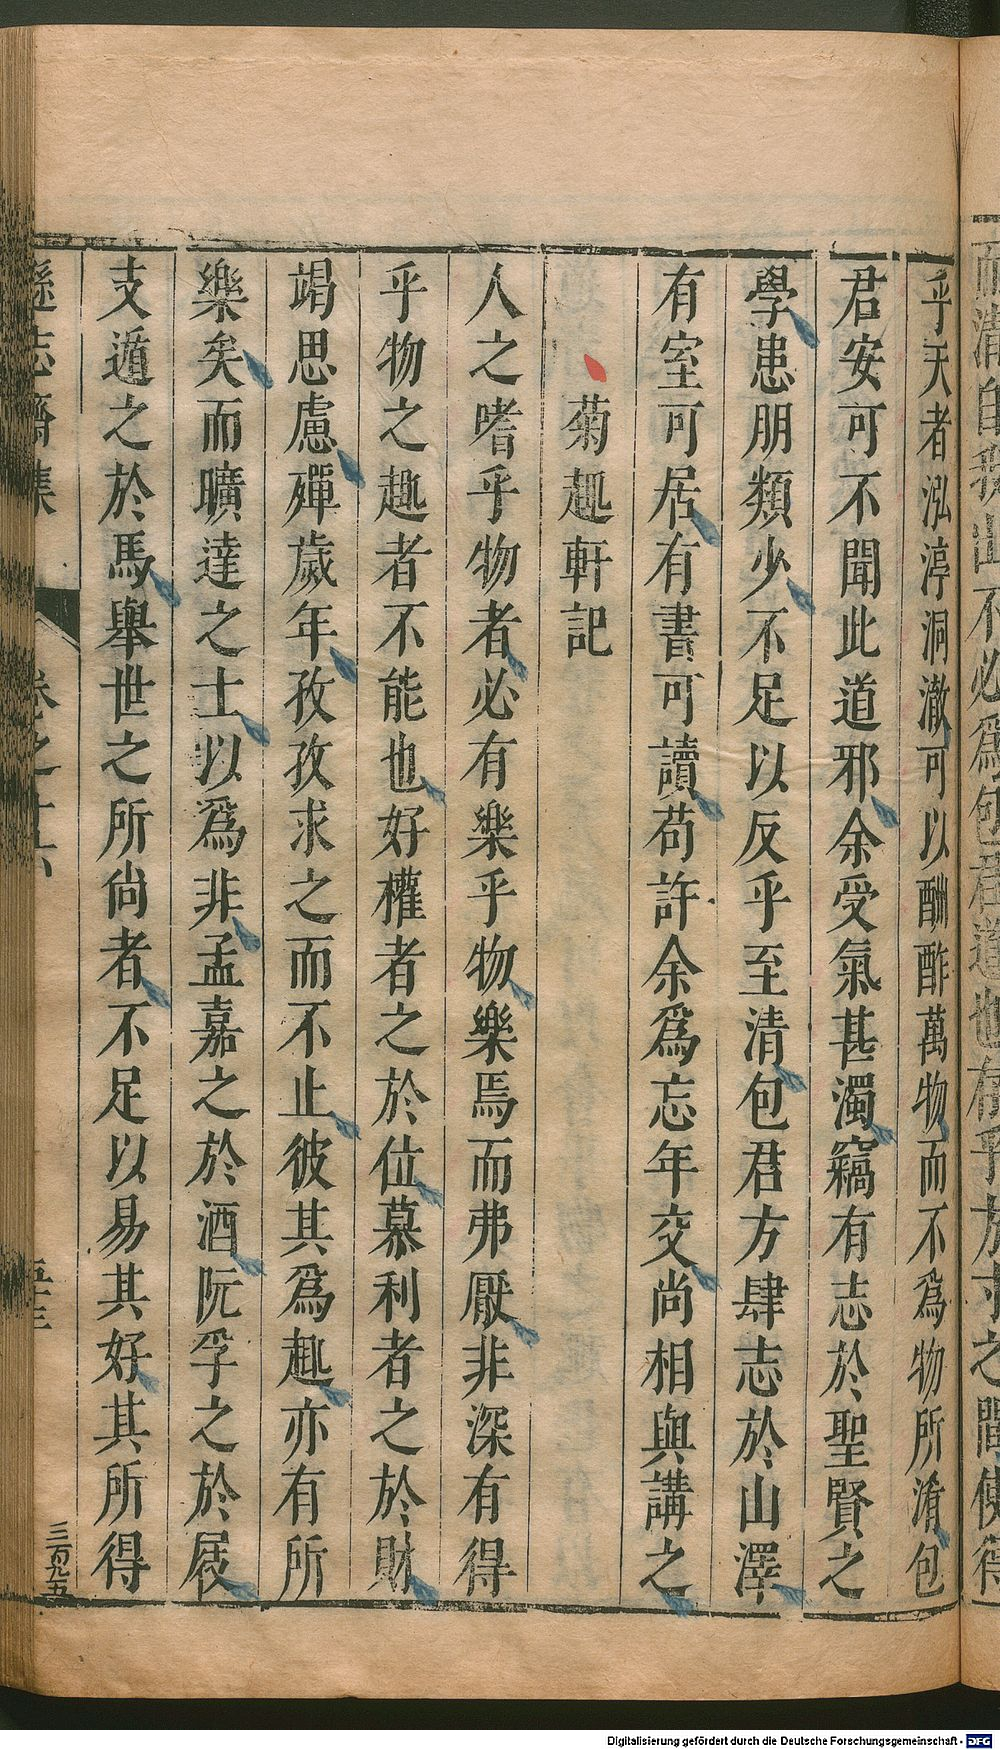 乎天者泓渟洞澈可以酬酢萬物而不爲物所淆包
君安可不聞此道邪余受氣甚濁竊有志於聖賢之
學患朋類少不足以反乎至清包君方肆志於山澤
有室可居有書可讀苟許余爲忘年交尚相與講之
菊趣軒記
人之嗜乎物者必有樂乎物樂焉而弗厭非深有得
乎物之趣者不能也好權者之於位慕利者之於財
竭思慮殫歲年孜孜求之而不止彼其爲趣亦有所
樂矣而曠達之士以爲非孟嘉之於酒阮孚之於屐
支遁之於馬舉世之所尚者不足以易其好其所得
遜志齋集
卷之十六
三百九五
Digitalisierung gefördert durch die Deutsche Forschungsgemeinschaft - DFG